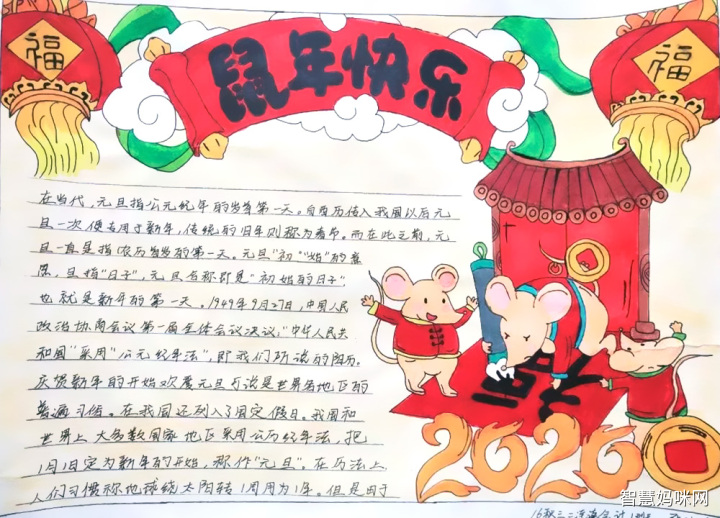 福
鼠年快乐
福
在当代,元旦指公元纪年的岁首第一天。自西历传入我国以后元
旦一次便专用于新年,传统的旧年则称为春节。而在此之前,元
旦一直是指农历岁首的第一天。元旦"初""始"的意
思,旦指"日子",元旦合称即是"初始的日子",
也就是新年的第一天。1949年9月27日,中国人民
政治协商会议第一届全体会议决议,"中华人民共
和国"采用"公元纪年法",即我们所说的阳历。
庆贺新年的开始欢度元旦可说是世界各地区的
普遍习俗。在我国还列入了固定假日。我国和
世界上大多数国家地区采用公历纪年法,把
1月1日定为新年的开始,称作"元旦"。在历法上,
人们习惯称地球绕太阳转1周周为1年。但是由于
2026
智慧妈咪网